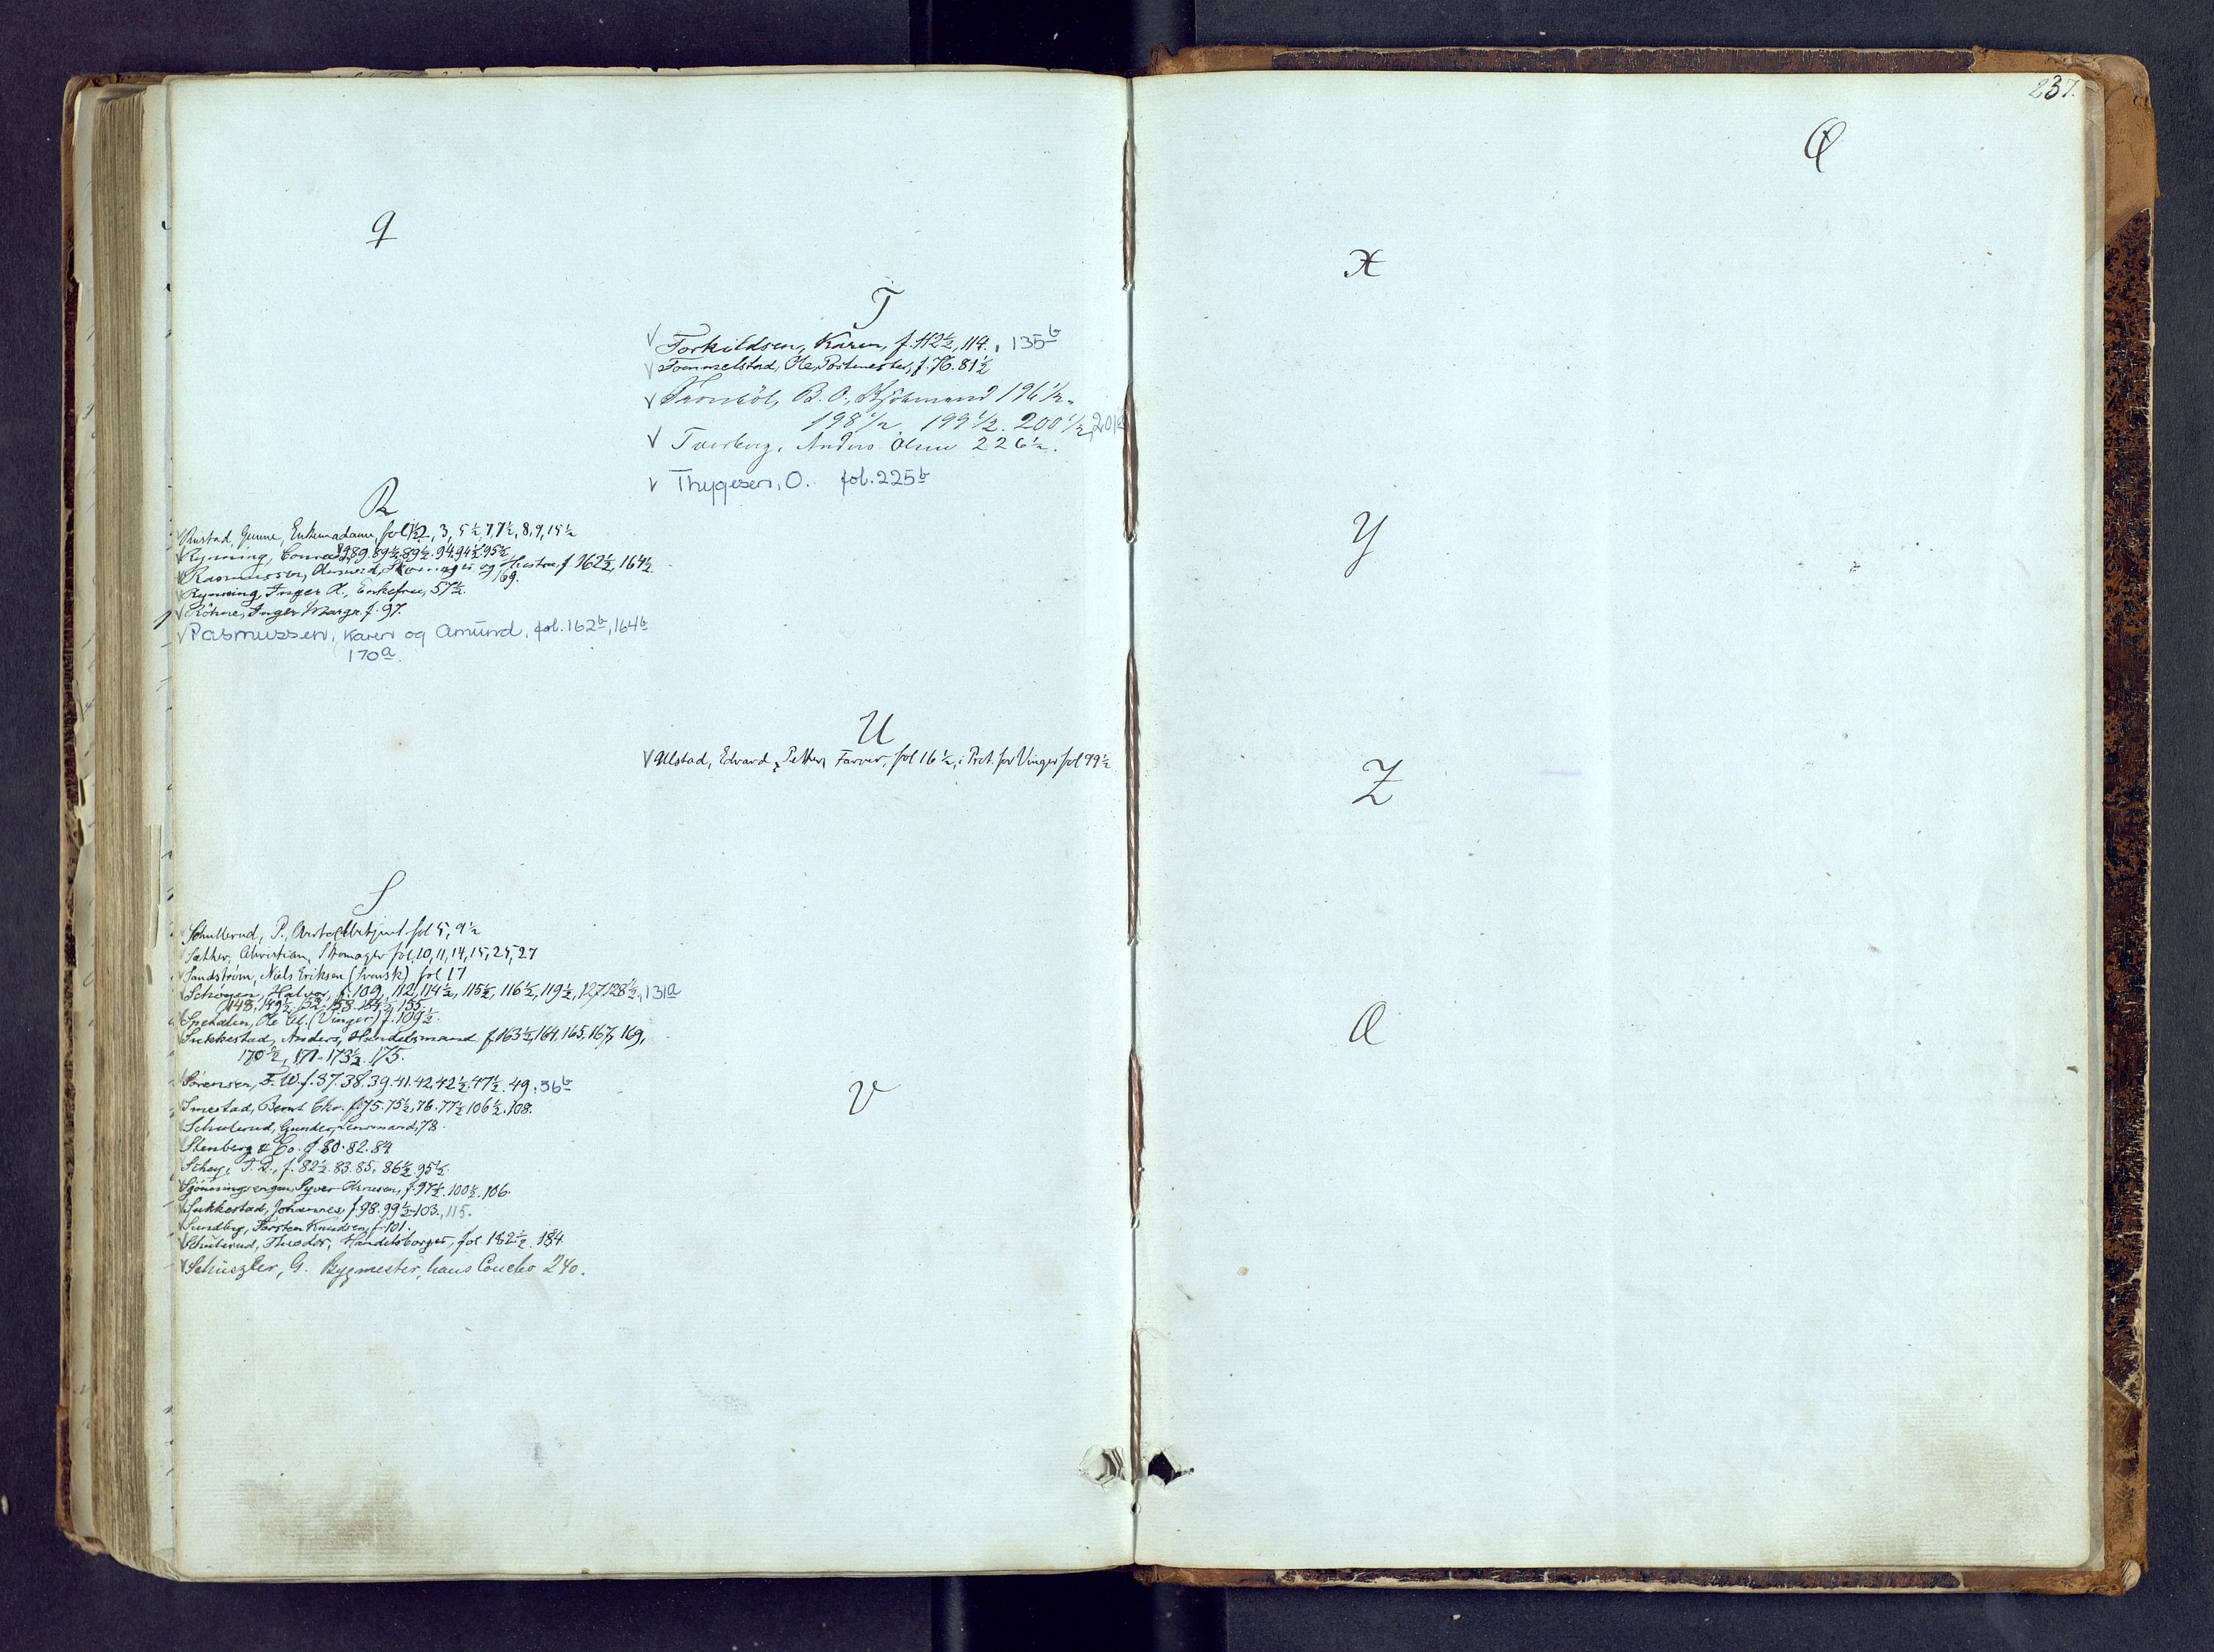 q
R
Rustad, Gunne, Enkemadame, fol 1½2, 3, 5½, 7, 7½, 8, 9, 15½
Rynning, 89. 89½. 94. 94½. 95½
Rasmussen, og Hustru f. 162½, 164½.
169.
Rynning, Inger A., Enkefrue, 57½.
Röhne, Inger Margr. f. 97.
Rasmussen, Karen og Amund, fol. 162b, 164b
170a.
S
Schullerud, P., fol 5, 9½
Sæther, Christian, Skomager fol. 10, 11, 14, 15, 25, 27
Sandstrøm, Niels Eriksen (svensk) fol 17
Schøyen, Halvor, f. 109, 112, 114½, 115½, 116½, 119½, 127, 128½, 131a
148, 149½, 152. 153. 154½. 155.
Ole (Vinger) f. 109½.
Sukkestad, Anders, Handelsmand f. 163½, 164, 165, 167, 169,
170½, 171-173½. 175.
Sørensen, F. W. f. 37. 38. 39. 41. 42. 42½. 47½. 49, 56b
Smestad, Bernt Chr. f. 75. 75½. 76. 77½. 106½. 108.
Schulerud, Gunder, Lensmand, 78.
Stenberg & Co. f. 80. 82. 84
f. 82½. 83. 85. 86½. 95½.
Syver Arnesen, f. 97½. 100½. 106.
Sukkestad, Johannes f. 98. 99½. 103., 115.
Sundby, Torsten Knudsen, f. 101.
Schulerud, Theodor, Handelsborger, fol. 182½. 184
G. Bygmester, hans Concebo 240.
T
Torkildsen, Karen, f. 112½, 114., 135b
Tommelstad, Ole, Postmester, f. 76. 81½
B. O., Kjöbmand 196½.
198½. 199½. 200½, 201a
Tverberg, Anders Olsen 226½.
Thygesen, O. fol. 225b
U
Ullstad, Edvard, Petter, Farver, fol 16½, i Prot. for Vinger fol 99½
V
237.
Ø
X
Y
Z